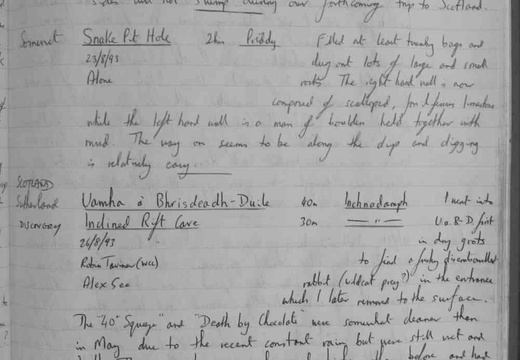 not swamp during our forthcoming trip to Scotland.
Somerset Snake Pit Hole 2hr Priddy Filled at least twenty bags and
23/8/93 dug out lots of large and small
Alone rocks. The right hand wall is now
composed of scalloped, fossiliferous limestone
while the left hand wall is a mass of boulders held together with
mud. The way on seems to be along the dip and digging
is relatively easy.
SCOTLAND
Sutherland Uamha à Bhrisdeadh-Duile 40m Inchnadamph I went into
DISCOVERY Inclined Rift Cave 30m —"— U.a.B-D first
26/8/93 in dry grots
Robin Taviner (WCC) to find a
Alex Gee rabbit (wildcat prey?) in the entrance
which I later removed to the surface.
The "40° Squeeze" and "Death by Chocolate" were somewhat cleaner than
in May due to the recent constant rain but were still wet and
before and have